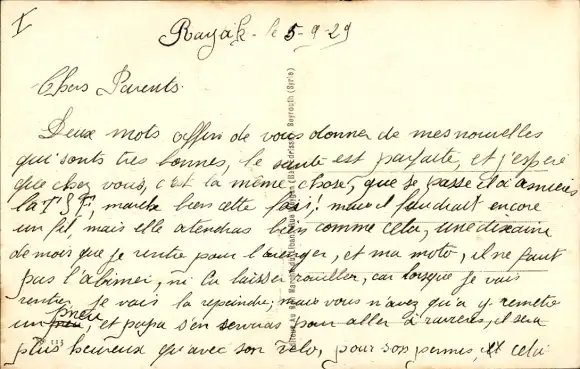 I
Rayak. le 5-9-29
Chers Parents.
Deux mots affin de vous donner de mes nouvelles
qui sonts très bonnes, le santé est parfaite, et j'espère
que chez vous, c'est la même chose, que se passe il à asnieres
la TSF, marche bien cette fois! mais il faudrait encore
un fil, mais elle atendras bien comme cela, une dixaine
de mois que je rentre pour l'aranger, et ma moto, il ne faut
pas l'abimer, ni la laisser rouiller, car lorsque je vais
rentrer je vais la repeindre, mais vous n'avez qu'a y remetre
un pneu, et papa s'en servuras pour aller à ravieres, il sera
plus heureux qu'avec son velo, pour son permis, et celui
113